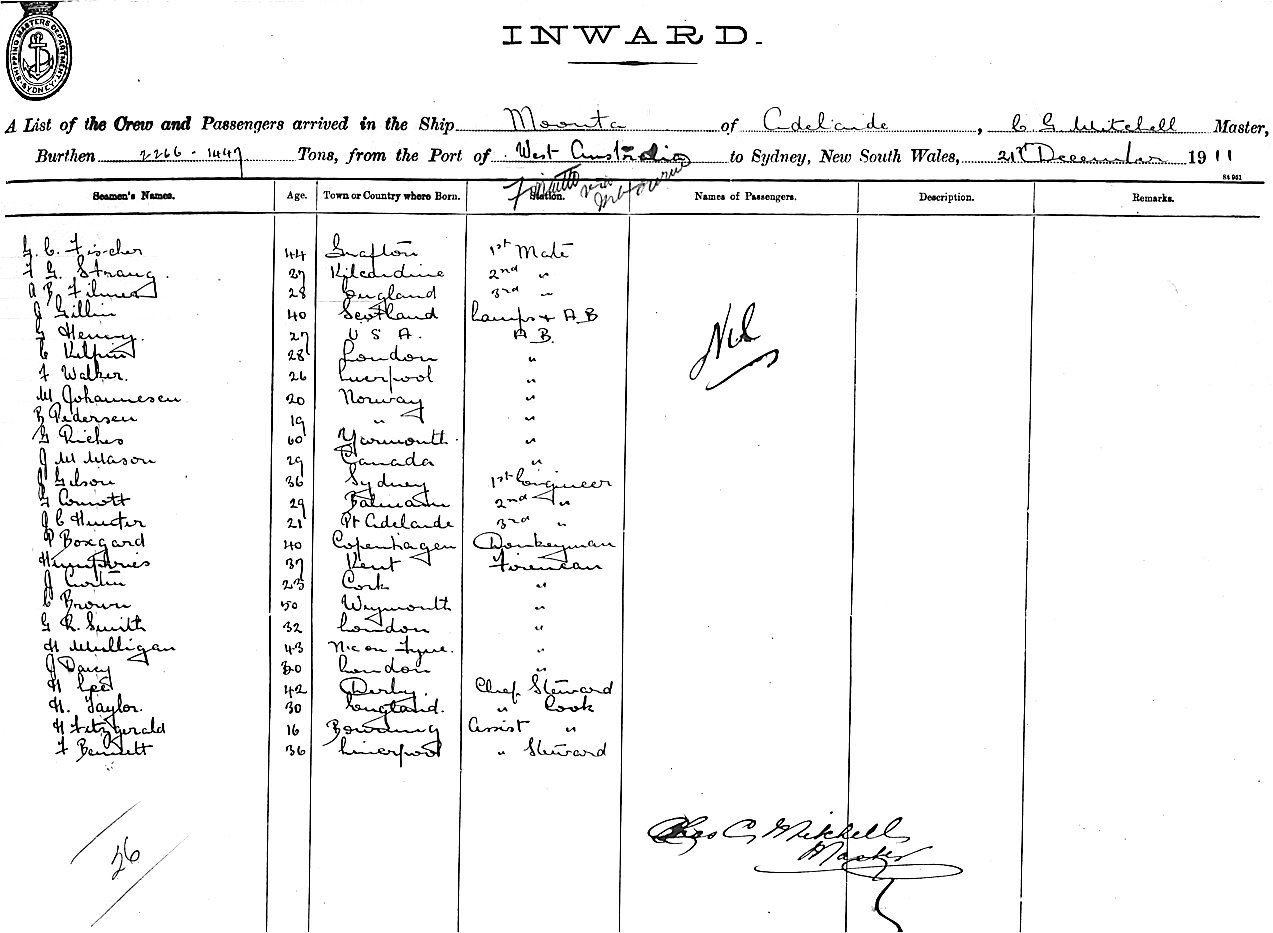 SHIPPING MASTERS DEPARTMENT. SYDNEY.
INWARD.
A List of the Crew and Passengers arrived in the Ship Moonta of Adelaide, C G Mitchell Master,
Burthen 2266 - 1447 Tons, from the Port of West Australia to Sydney, New South Wales, 21st December 1911
via Melbourne
84 961
Seamen's Names. Age. Town or Country where Born. Station. Names of Passengers. Description. Remarks.
G. C. Fischer 44 Grafton 1st Mate
F G. Strang. 27 Kilcardine 2nd "
A B Filmer 28 England 3rd "
J Gillin 40 Scotland Lamps & A B
G Henry. 27 U S A. A B.
C Kilpin 28 London "
F Walker. 26 Liverpool "
M Johannesen 20 Norway "
B Pedersen 19 " "
G Riches 60 Yarmouth. "
J M Mason 29 Canada "
J Gilson 36 Sydney 1st Engineer
G Connott 29 Balmain 2nd "
J C Hunter 21 Pt Adelaide 3rd "
P Boxgard 40 Copenhagen Donkeyman
Humphries 37 Kent Fireman
J Curtin 23 Cork "
C Brown 50 Weymouth "
G R. Smith 32 London "
H Mulligan 43 N.c on Tyne. "
J Darcy 30 London "
H Lee 42 Derby. Chief Steward
H. Taylor. 30 England. " Cook
H Fitzgerald 16 Bowning Assist "
F Bennett 36 Liverpool " Steward
Nil
Chas G Mitchell
Master
26